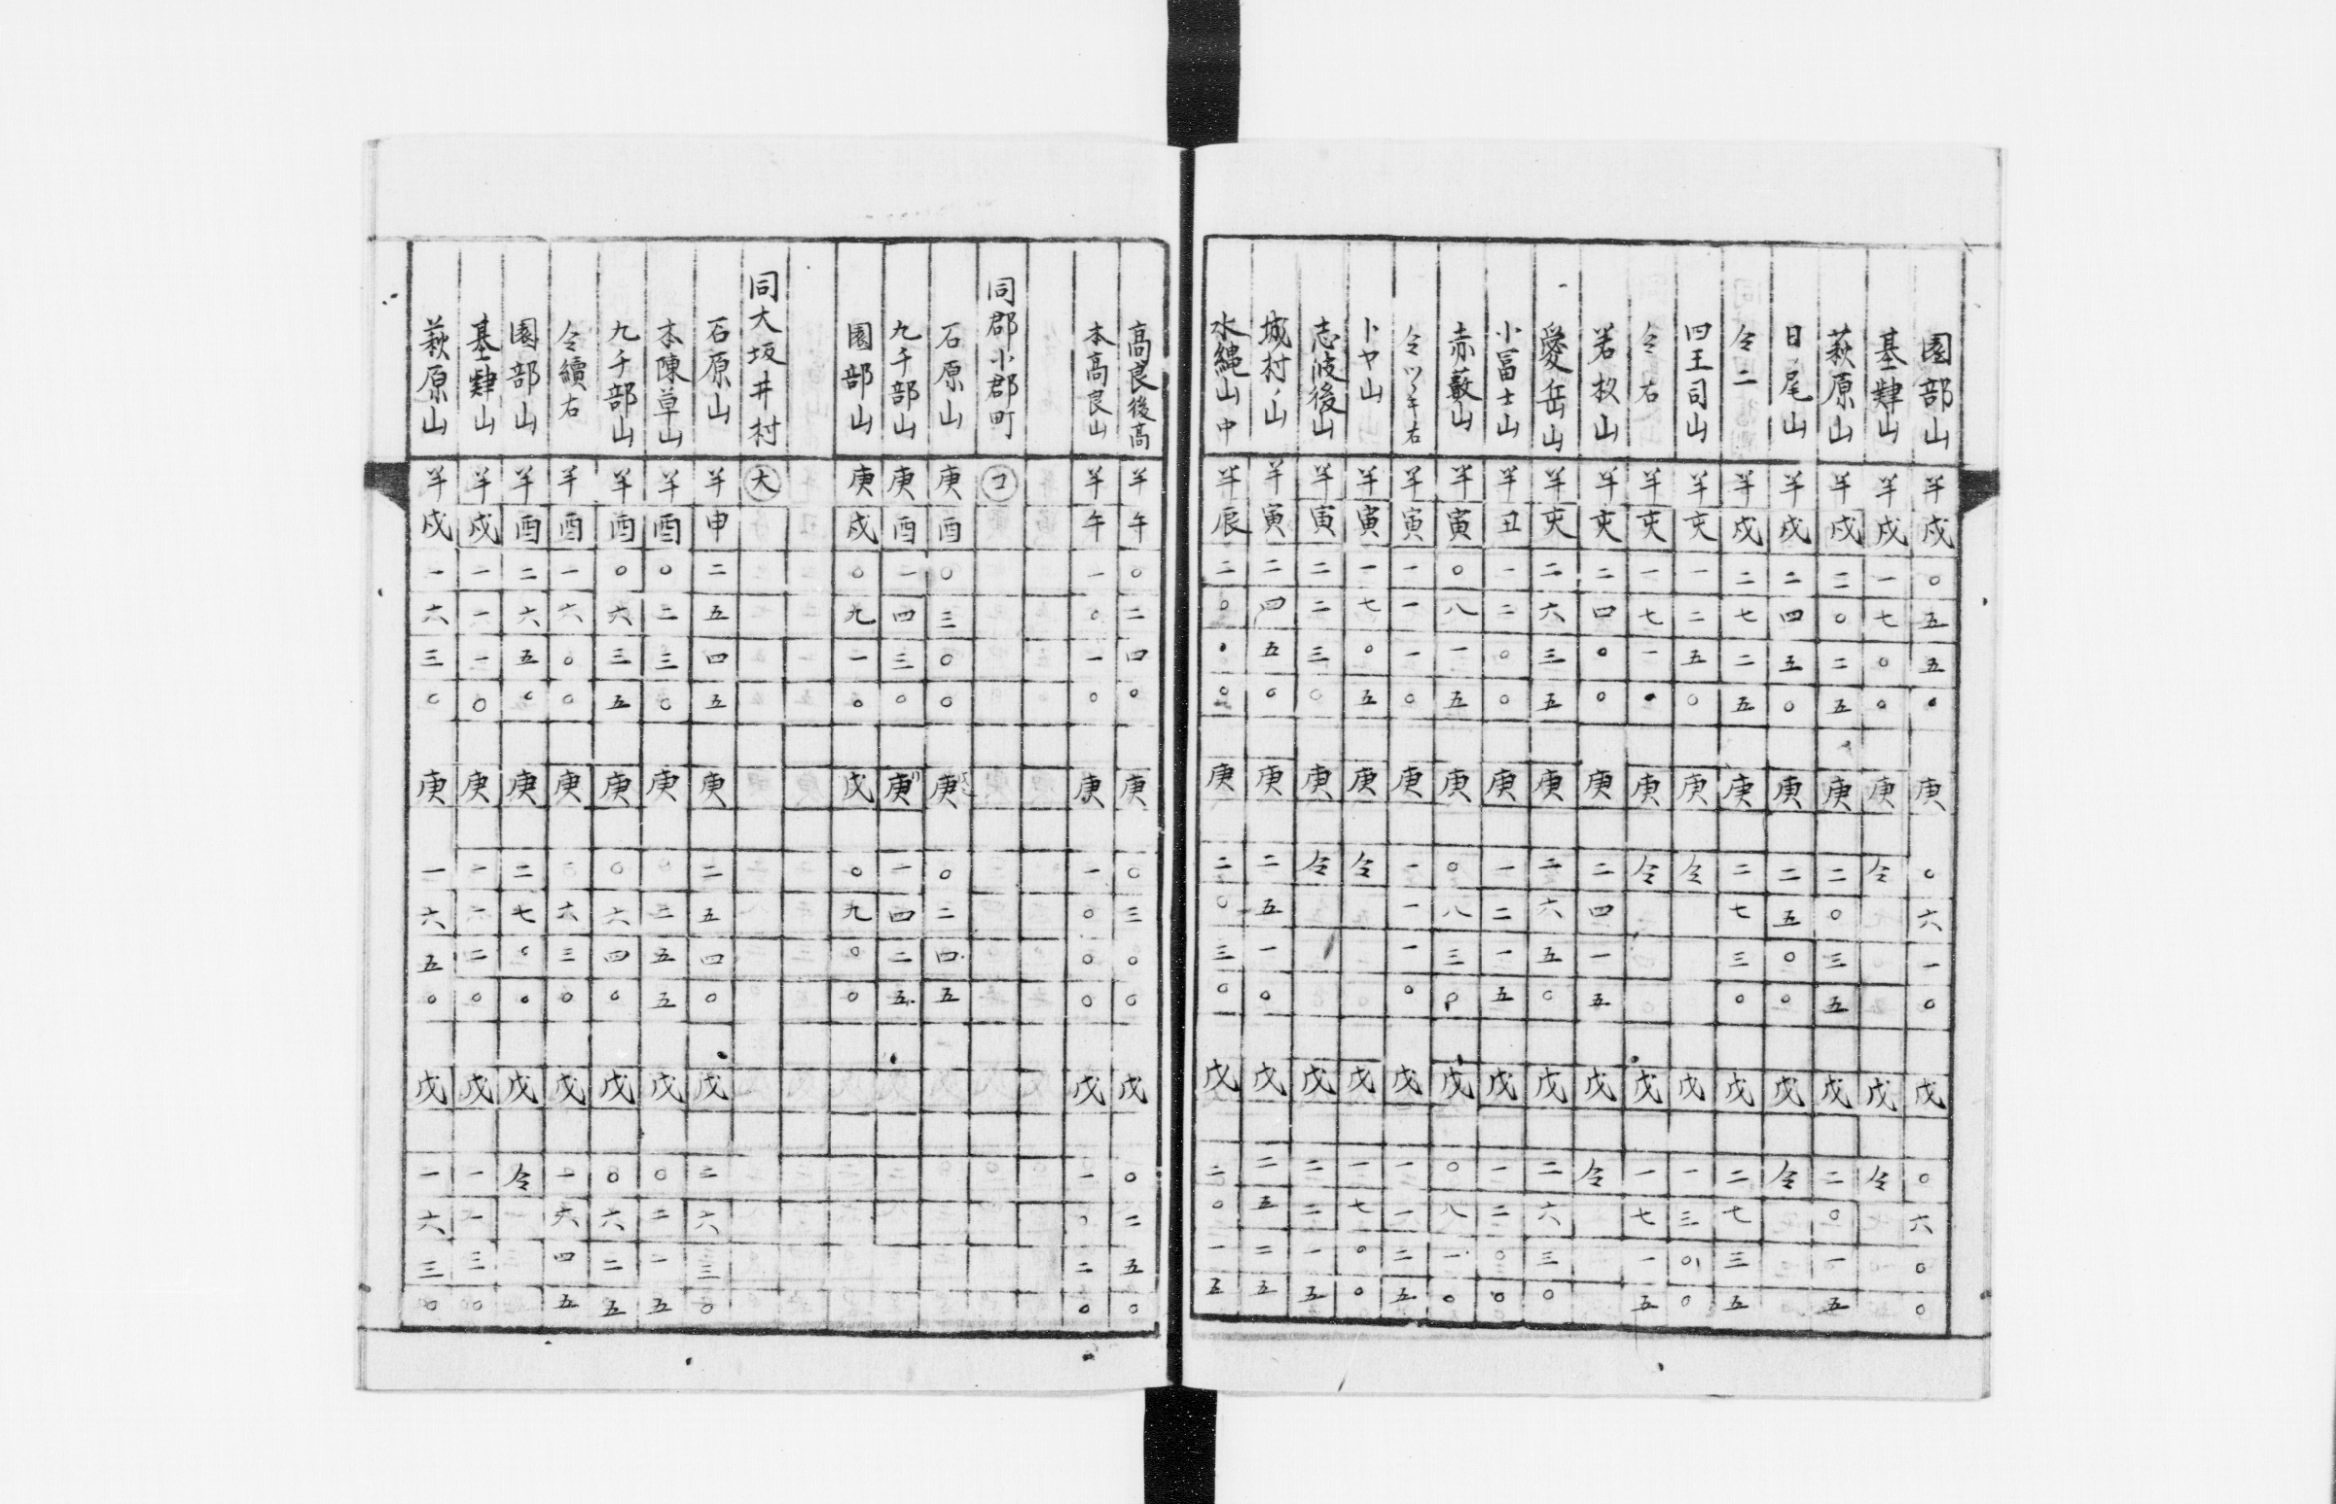 園部山 半戌 〇五五〇 庚 〇六一〇 戊 〇六〇〇
基肄山 半戌 一七〇〇 庚 仝 戊 仝
萩原山 半戌 二〇二五 庚 二〇三五 戊 二〇一五
日尾山 半戌 二四五〇 庚 二五〇〇 戊 仝
仝二 半戌 二七二五 庚 二七三〇 戊 二七三五
四王司山 半亥 一二五〇 庚 仝 戊 一三〇
仝右 半亥 一七一〇 庚 仝 戊 一七一五
若杦山 半亥 二四〇〇 庚 二四一五 戊 仝
愛岳山 半亥 二六三五 庚 二六五〇 戊 二六三〇
小冨士山 半丑 一二〇〇 庚 一二一五 戊 一二〇〇
赤藪山 半寅 〇八一五 庚 〇八三〇 戊 〇八一〇
仝ツヾキ右 半寅 一一一〇 庚 一一一〇 戊 一一二五
トヤ山 半寅 一七〇五 庚 仝 戊 一七〇〇
志波後山 半寅 二二三〇 庚 仝 戊 二二一五
城村ノ山 半寅 二四五〇 庚 二五一〇 戊 二五二五
水縄山中 半辰 二〇〇〇 庚 二〇三〇 戊 二〇一五
高良後高 半午 〇二四〇 庚 〇三〇〇 戊 〇二五〇
本高良山 半午 一〇一〇 庚 一〇〇〇 戊 一〇二〇
同郡小郡町 コ
石原山 庚酉 〇三〇〇 庚 〇二四五
九千部山 庚酉 一四三〇 庚 一四二五
園部山 庚戌 〇九一〇 戊 〇九〇〇
同大坂井村 大
石原山 半申 二五四五 庚 二五四〇 戊 二六三〇
本陳草山 半酉 〇二三〇 庚 〇二五五 戊 〇二一五
九千部山 半酉 〇六三五 庚 〇六四〇 戊 〇六二五
仝續右 半酉 一六〇〇 庚 一六三〇 戊 一六四五
園部山 半酉 二六五〇 庚 二七〇〇 戊 仝
基肄山 半戌 一一一〇 庚 一一二〇 戊 一一三〇
萩原山 半戌 一六三〇 庚 一六五〇 戊 一六三〇